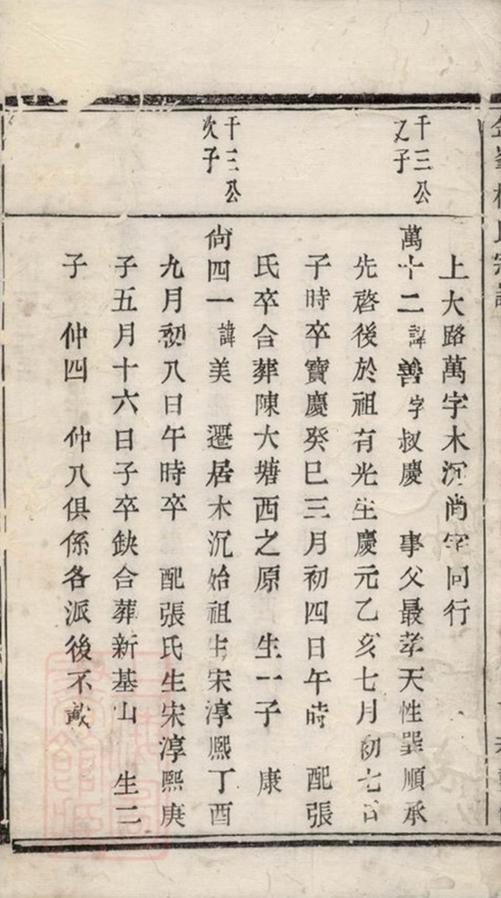 上大路萬字木沉尚字同行
千三公
又子
萬十二諱善字叔慶 事父最孝天性巽順承
先啓後於祖有光生慶元乙亥七月初七日
子時卒寶慶癸巳三月初四日午時 配張
氏卒合葬陳大塘西之原 生一子 康
千三公
次子
尚四一諱美 遷居木沉始祖生宋淳熙丁酉
九月初八日午時卒 配張氏生宋淳熙庚
子五月十六日子卒缺合葬新基山 生二
子 仲四 仲八俱係各派後不戴